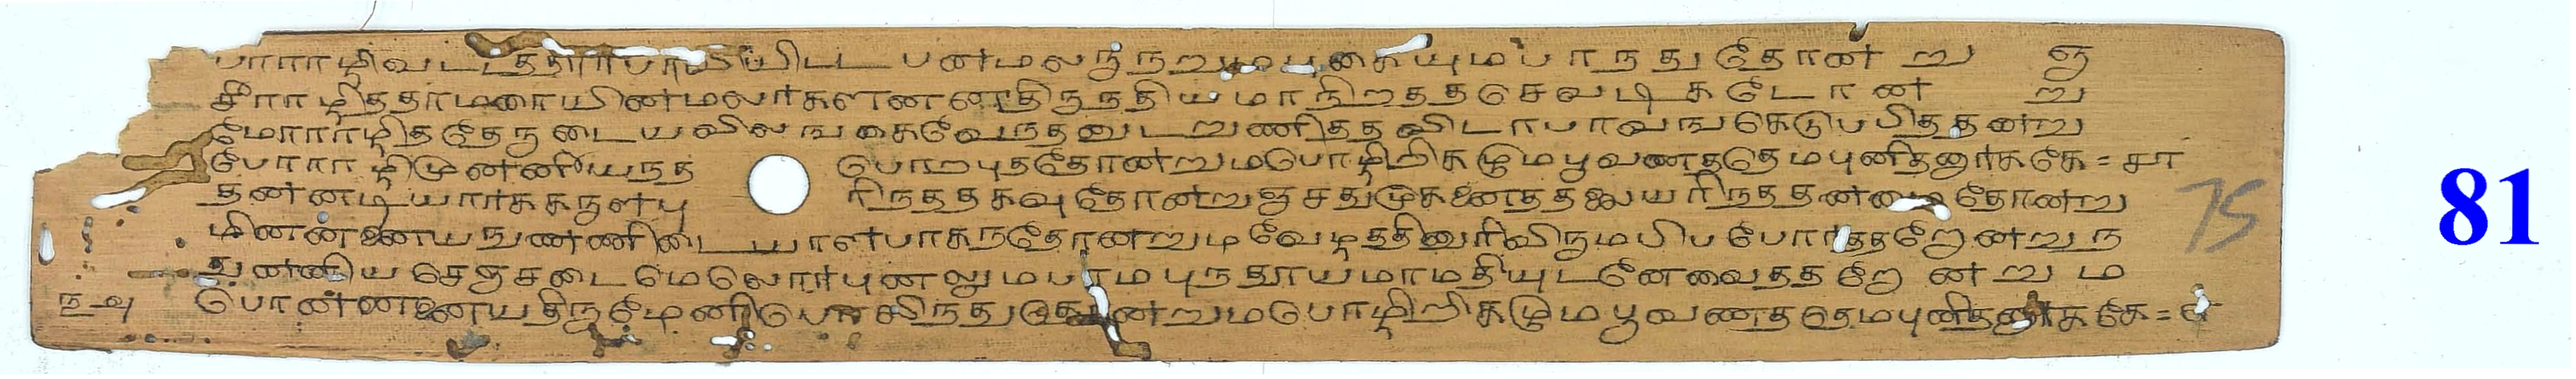 பாராழிவடடததாரபரவியிடட பனமலருநறுமபுகையுமபாநதுதோன று ஞ
சீராழிததாமரையினமலரகளனனதிருநதியமாநிறததசெவடிகடோன று
மோராழிததேருடையவிலஙகைவேநதனுடறுணிததவிடாபாவஙகெடுபபிததனறு
போராழிமுனனியநத பொறபுததோனறுமபொழிறிகழுமபூவணததெமபுனிதனாரககே = சா
தனனடியாரககருளபு ரிநததகவுதோனறுஞசதுமுகனைததலையரிநததனமைதோனறு
மினனனையநுணணிடையாளபாகநதோனறுமவேழததினுரிவிருமபிபபோரததறோனறுந
துனனியசெஞசடைமேலோரபுனலுமபாமபுநதூயமாமதியுடனேவைததறோ னறு ம
பொனனனையதிருமேனிபொலிநதுதோனறுமபொழிறிகழுமபூவணததெமபுனிதனாரககே =
75
81